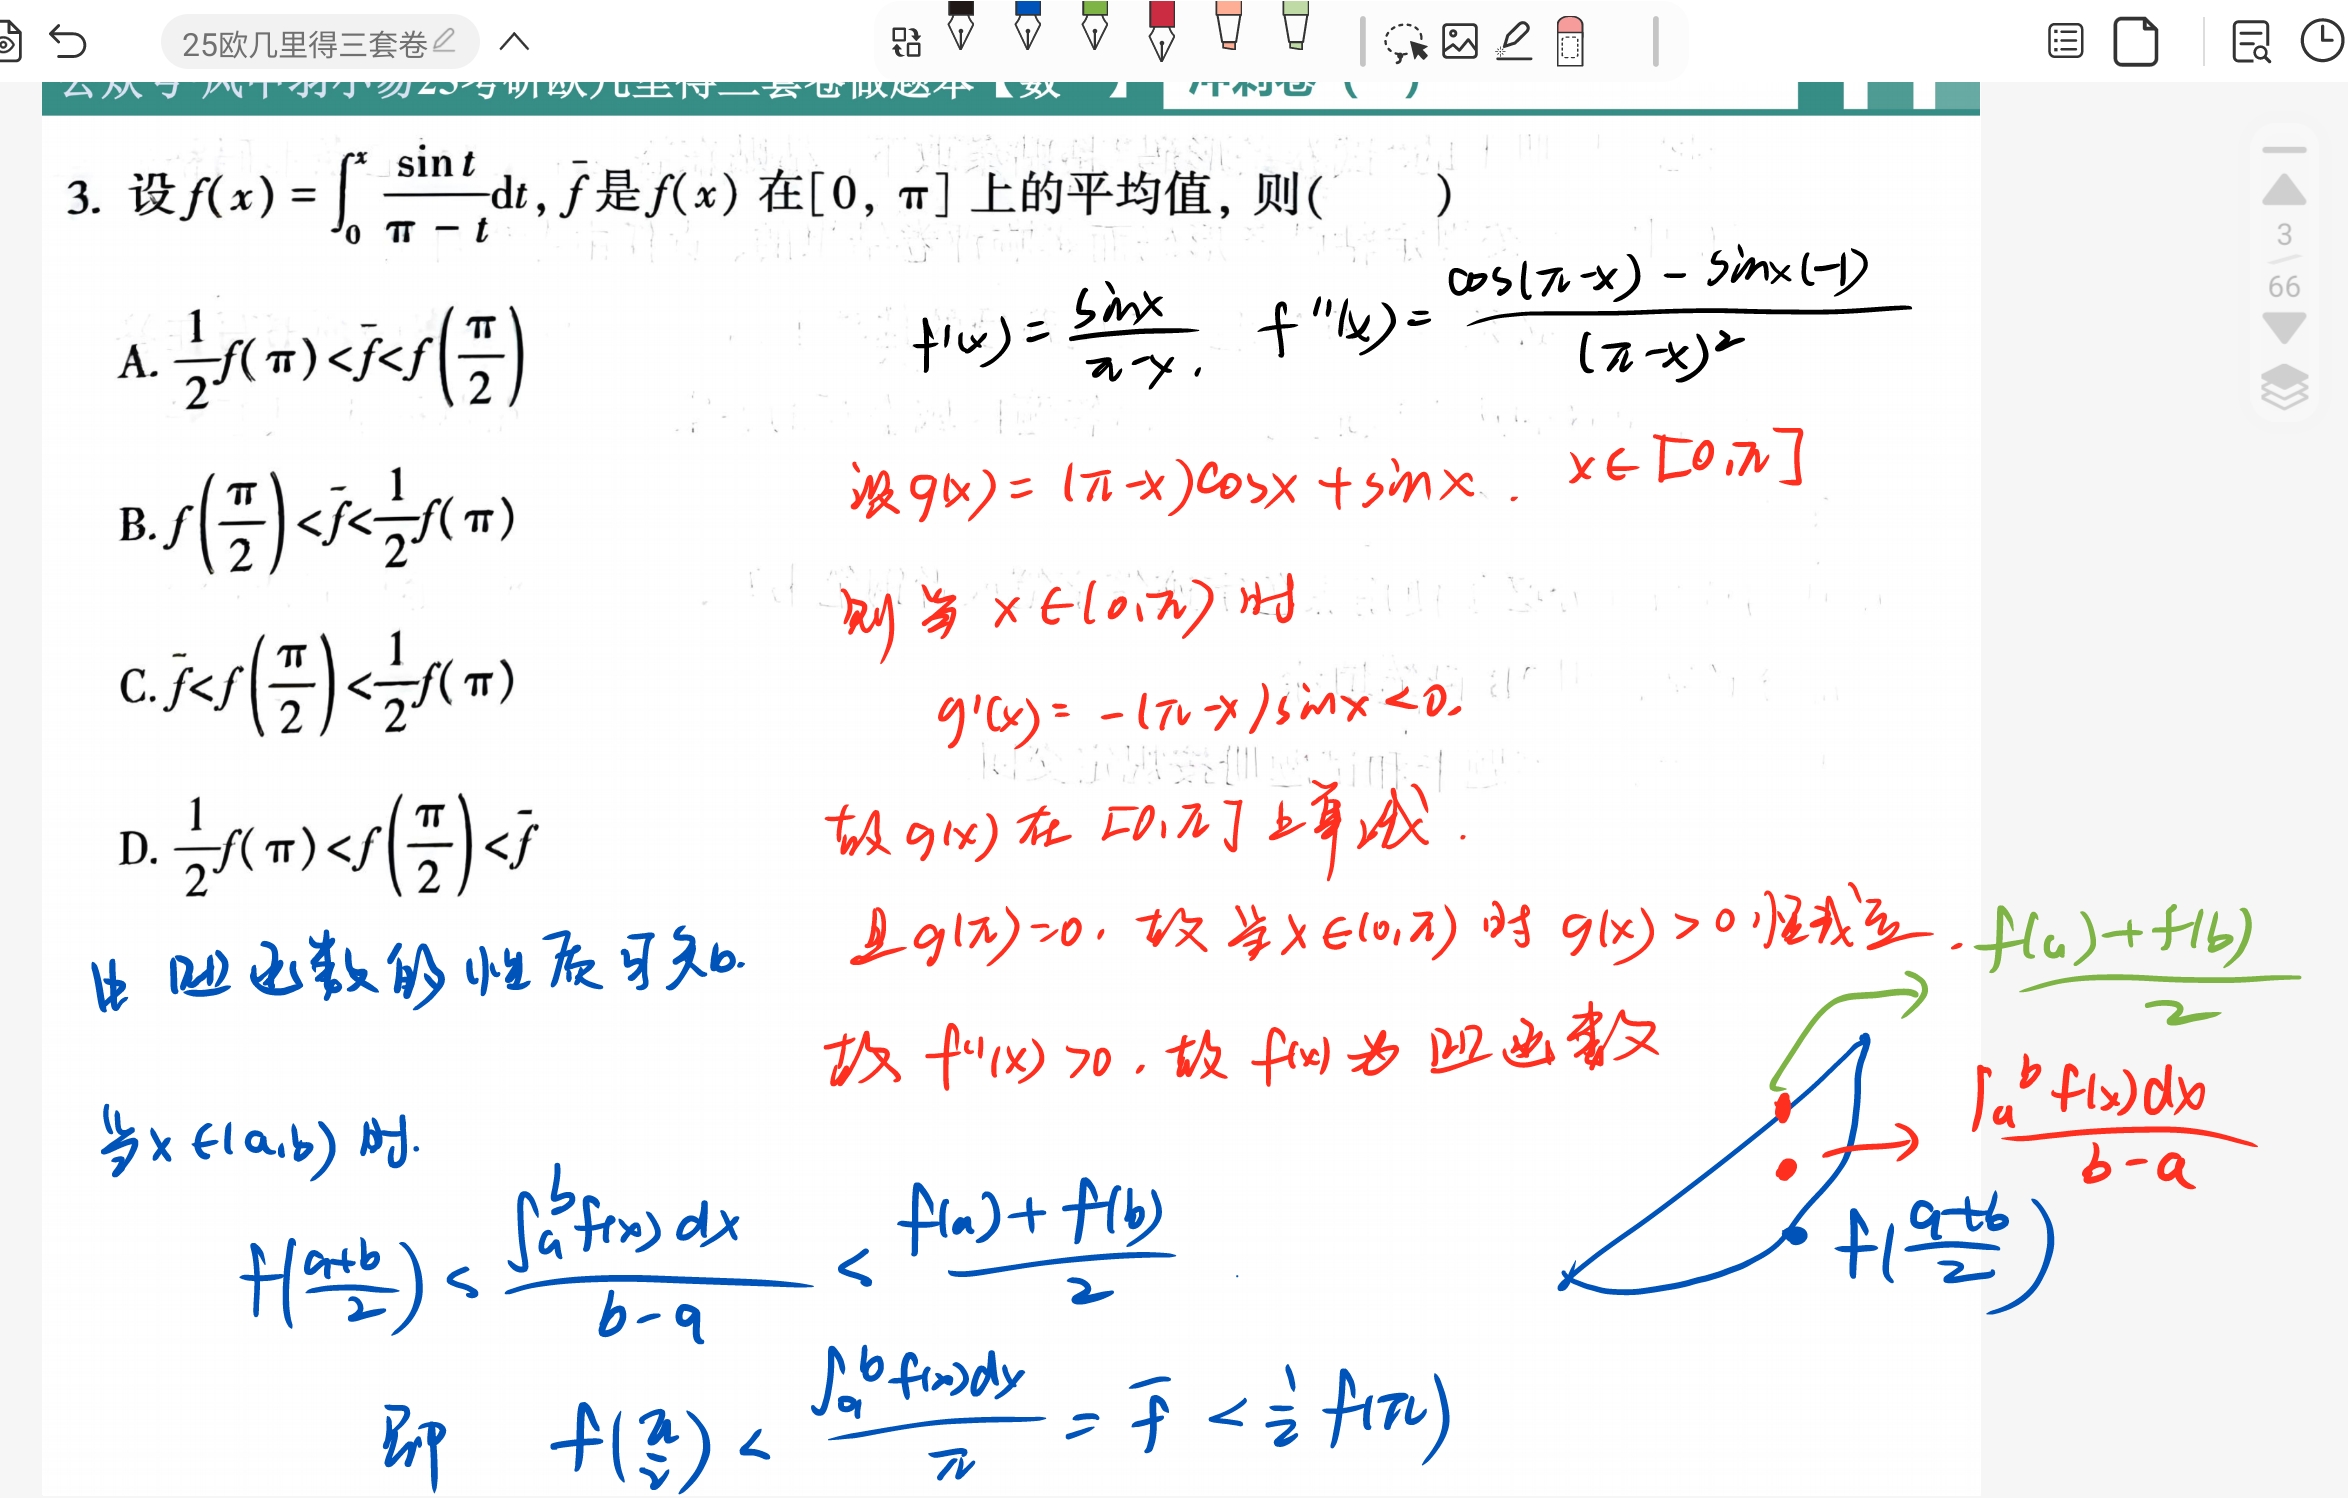 25欧几里得三套卷
公众号 风中羽小易25考研欧几里得三套卷做题本【数一】 冲刺卷（一）
3. 设 f(x) = ∫₀ˣ sin t/(π − t) dt, f̄ 是 f(x) 在[0, π] 上的平均值, 则( )
A. 1/2 f(π) < f̄ < f(π/2)
B. f(π/2) < f̄ < 1/2 f(π)
C. f̄ < f(π/2) < 1/2 f(π)
D. 1/2 f(π) < f(π/2) < f̄
f'(x) = sinx/(π-x). f''(x) = (cos(π-x) - sinx(-1))/(π-x)²
设 g(x) = (π-x)cosx + sinx. x∈[0,π]
则当 x∈(0,π) 时
g'(x) = -(π-x)sinx <0.
故 g(x) 在 [0,π] 上单减.
且 g(π)=0. 故当 x∈(0,π) 时 g(x) >0 恒成立.
故 f''(x) >0. 故 f(x) 为凹函数
由凹函数的性质可知.
当 x∈(a,b) 时.
f((a+b)/2) < ∫ₐᵇ f(x)dx/(b-a) < (f(a)+f(b))/2
即 f(π/2) < ∫ₐᵇ f(x)dx/π = f̄ < 1/2 f(π)
(f(a)+f(b))/2
∫ₐᵇ f(x)dx/(b-a)
f((a+b)/2)
3
66